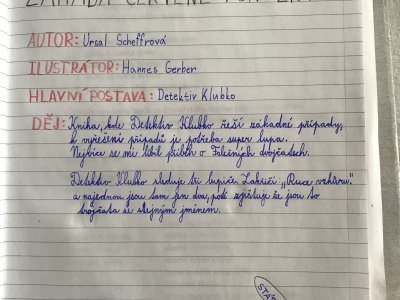 ZÁHADA ČERVENÉ
AUTOR: Ursal Scheffrová
ILUSTRÁTOR: Hannes Gerber
HLAVNÍ POSTAVA: Detektiv Klubko
DĚJ: Kniha, kde Detektiv Klubko řeší záhadní případy,
k vyřešení případů je potřeba super lupa.
Nejvíce se mi líbil příběh o Falešných dvojčatech.
Detektiv Klubko sleduje tři lupiče. Zakřičí: „Ruce vzhůru"
a najednou jsou tam jen dva, poté zjišťuje že jsou to
trojčata se stejným jménem.